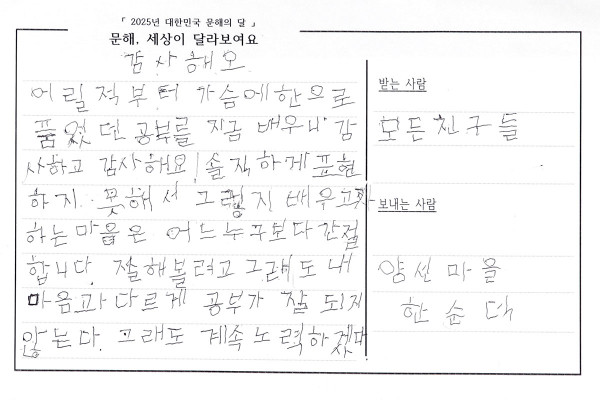 「 2025년 대한민국 문해의 달 」
문해, 세상이 달라보여요
감사해오
어릴적부터 가슴에한으로
품었던 공부를 지금 배우니 감
사하고 감사해요! 솔직하게 표현
하지 못해서 그렇지 배우고자
하는마음은 어느누구보다 간절
합니다. 잘해볼려고 그래도 내
마음과 다르게 공부가 잘 되지
않는다. 그래도 계속 노력하겠다
받는 사람
모든친구들
보내는 사람
양선마을
한순덕